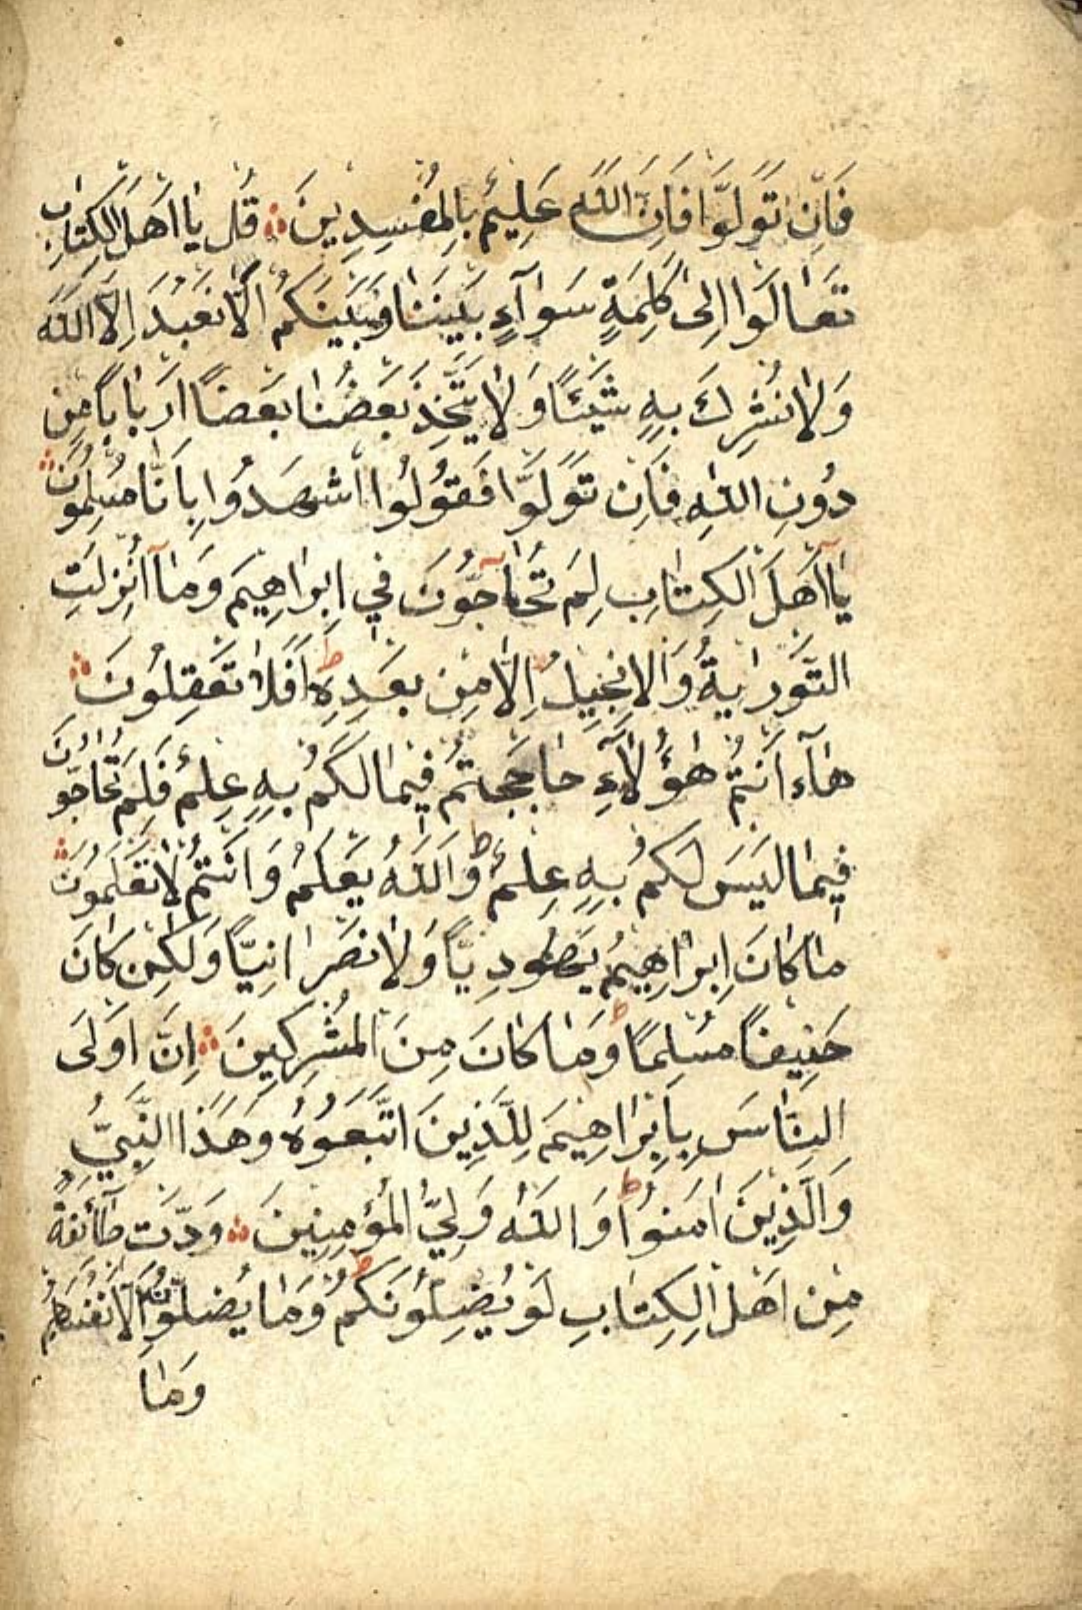 فَاِنْ تَوَلَّوْا فَاِنَّ اللّٰهَ عَلِيمٌ بِالْمُفْسِدِينَ ۞ قُلْ يَا اَهْلَ الْكِتَابِ
تَعَالَوْا اِلٰى كَلِمَةٍ سَوَآءٍ بَيْنَنَا وَبَيْنَكُمْ اَلَّا نَعْبُدَ اِلَّا اللّٰهَ
وَلَا نُشْرِكَ بِهٖ شَيْئًا وَلَا يَتَّخِذَ بَعْضُنَا بَعْضًا اَرْبَابًا مِنْ
دُونِ اللّٰهِ فَاِنْ تَوَلَّوْا فَقُولُوا اشْهَدُوا بِاَنَّا مُسْلِمُونَ ۞
يَٓا اَهْلَ الْكِتَابِ لِمَ تُحَٓاجُّونَ فِي اِبْرٰاهِيمَ وَمَٓا اُنْزِلَتِ
التَّوْرٰيةُ وَالْاِنْجِيلُ اِلَّا مِنْ بَعْدِهٖ ط اَفَلَا تَعْقِلُونَ ۞
هَٓاءَ اَنْتُمْ هٰؤُلَٓاءِ حَاجَجْتُمْ فِيمَا لَكُمْ بِهٖ عِلْمٌ فَلِمَ تُحَاجُّونَ
فِيمَا لَيْسَ لَكُمْ بِهٖ عِلْمٌ ط وَاللّٰهُ يَعْلَمُ وَاَنْتُمْ لَا تَعْلَمُونَ ۞
مَا كَانَ اِبْرٰاهِيمُ يَهُودِيًّا وَلَا نَصْرَانِيًّا وَلٰكِنْ كَانَ
حَنِيفًا مُسْلِمًا ط وَمَا كَانَ مِنَ الْمُشْرِكِينَ ۞ اِنَّ اَوْلَى
النَّاسِ بِاِبْرٰاهِيمَ لَلَّذِينَ اتَّبَعُوهُ وَهٰذَا النَّبِيُّ
وَالَّذِينَ اٰمَنُوا ط وَاللّٰهُ وَلِيُّ الْمُؤْمِنِينَ ۞ وَدَّتْ طَٓائِفَةٌ
مِنْ اَهْلِ الْكِتَابِ لَوْ يُضِلُّونَكُمْ ط وَمَا يُضِلُّونَ اِلَّا اَنْفُسَهُمْ
وَمَا